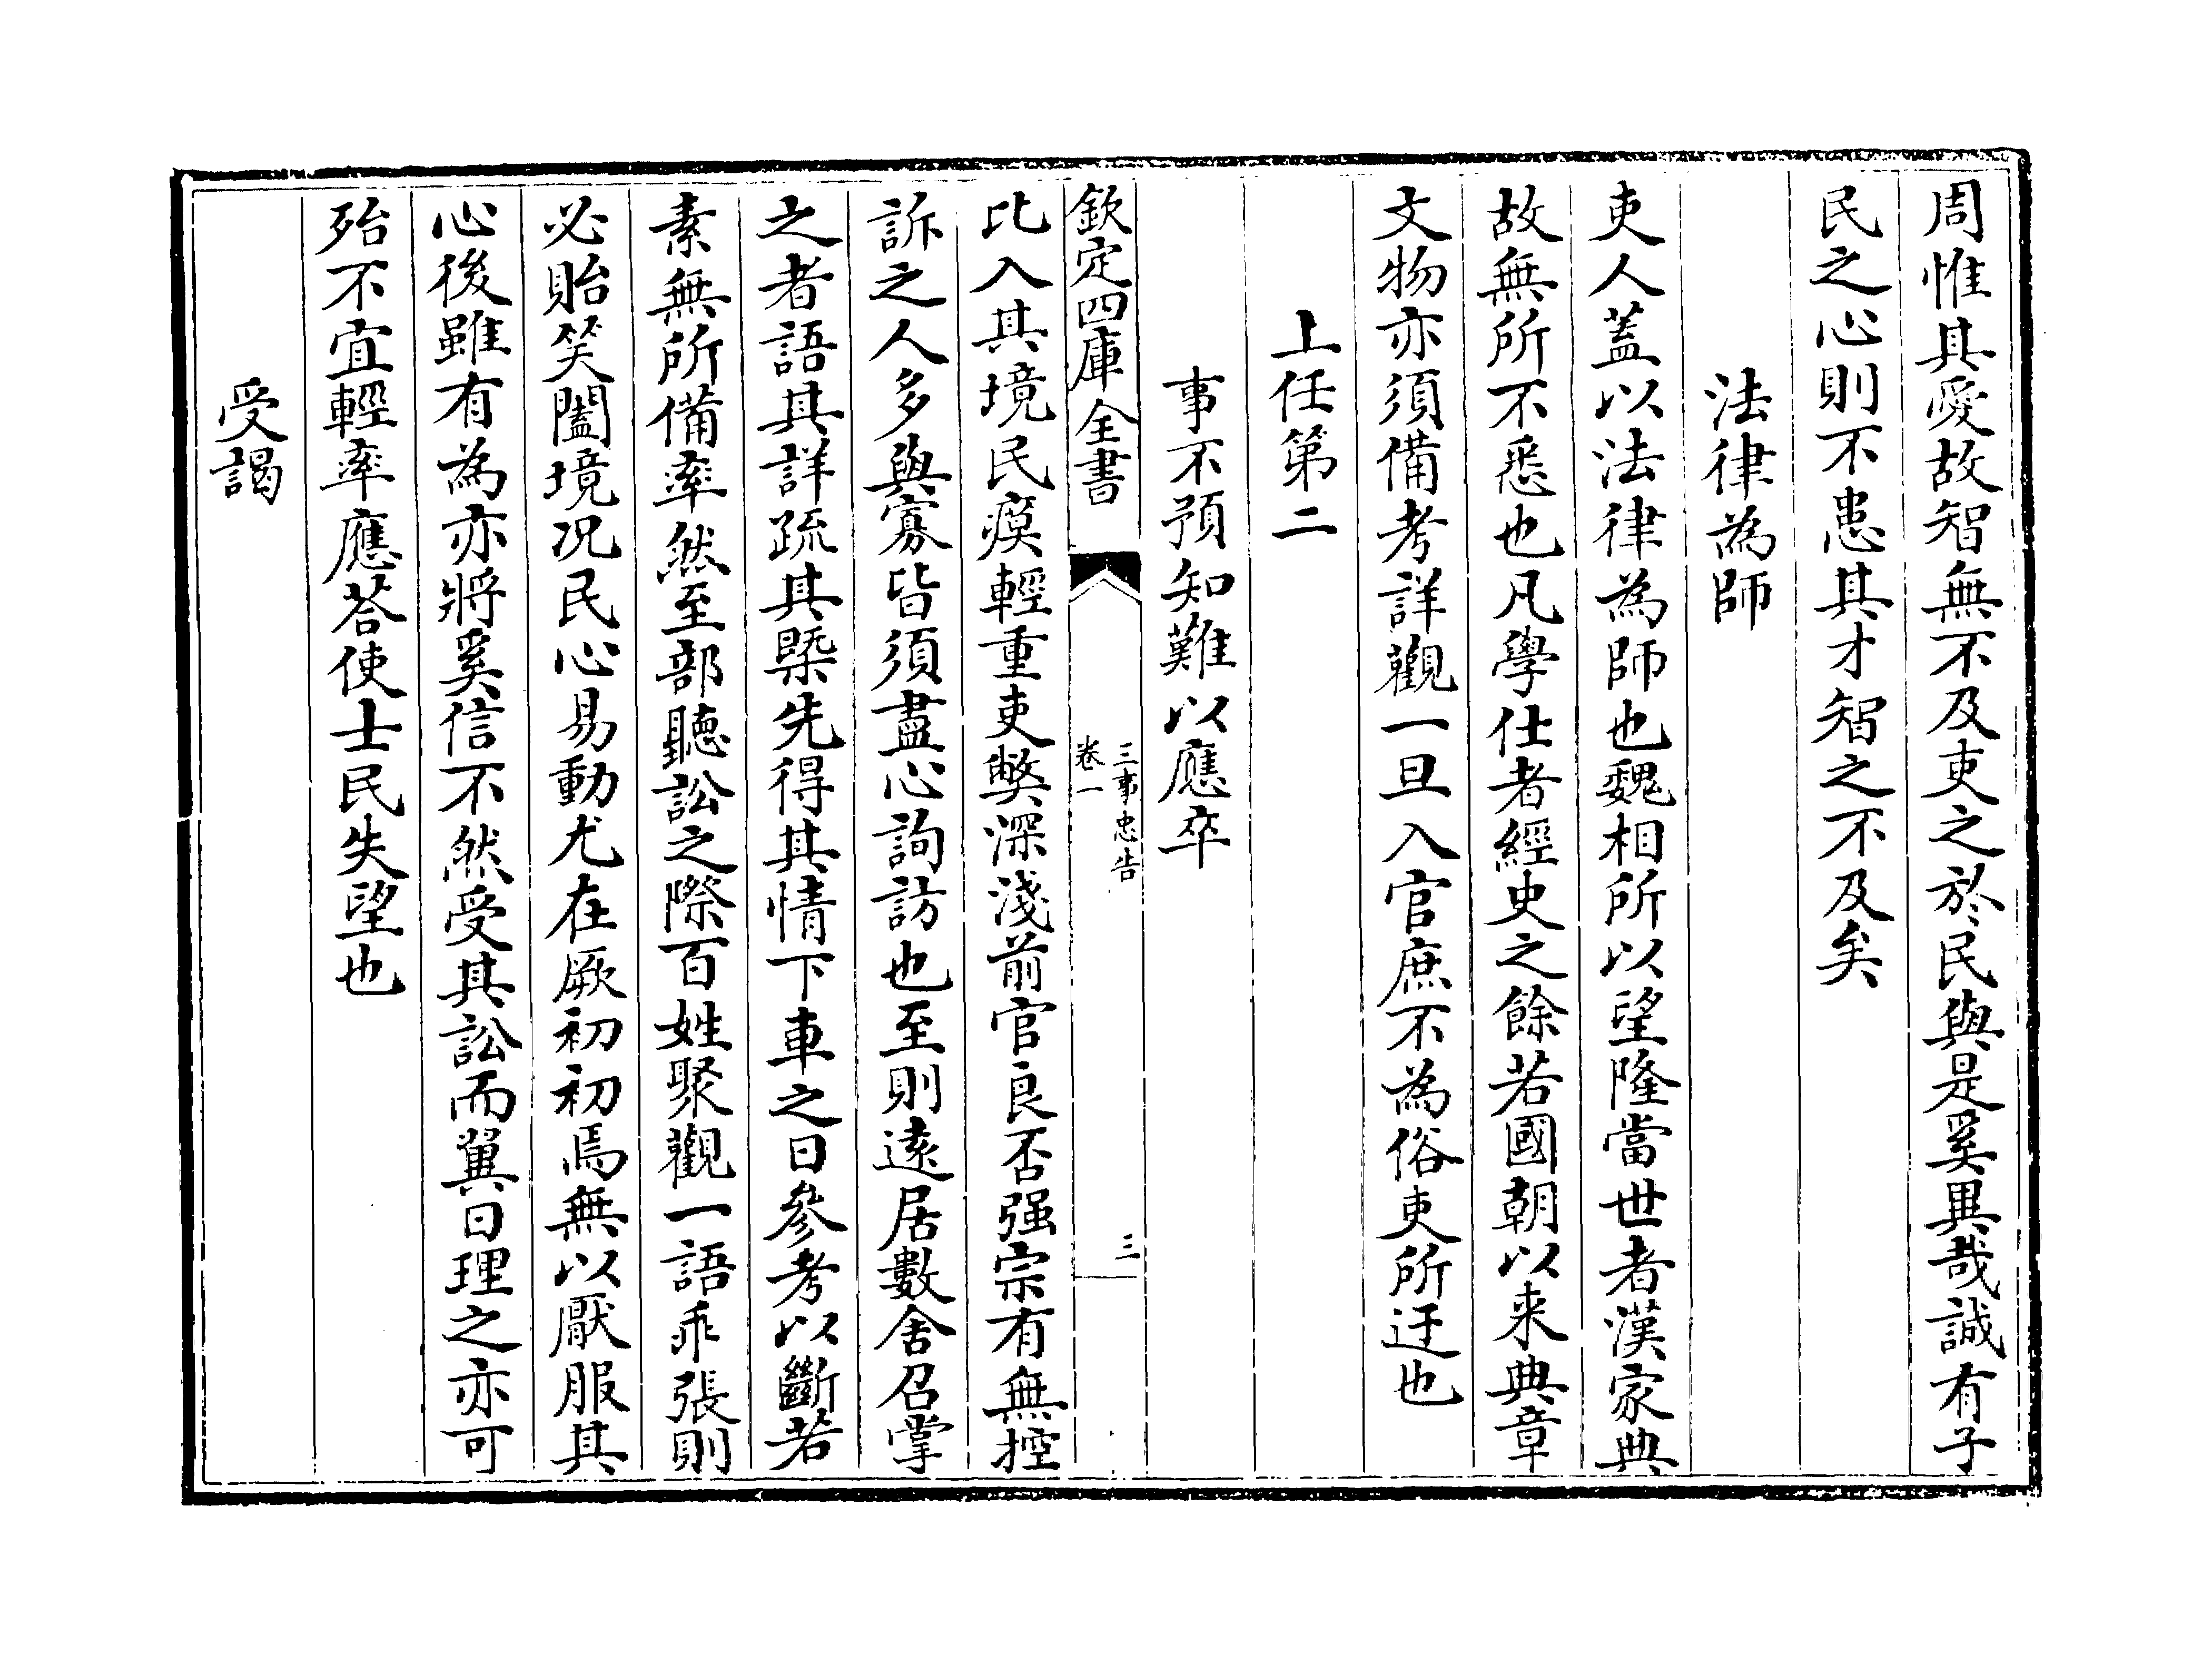 周惟其愛故智無不及吏之於民與是奚異哉誠有子
民之心則不患其才智之不及矣
法律為師
吏人蓋以法律為師也魏相所以望隆當世者漢家典
故無所不悉也凡學仕者經史之餘若國朝以来典章
文物亦須備考詳觀一旦入官庶不為俗吏所迂也
上任第二
事不預知難以應卒
欽定四庫全書
三事忠告
卷一
三
比入其境民瘼輕重吏弊深淺前官良否强宗有無控
訴之人多與寡皆須盡心詢訪也至則逺居數舍召掌
之者語其詳疏其槩先得其情下車之日參考以斷若
素無所備率然至部聽訟之際百姓聚觀一語乖張則
必貽笑闔境况民心易動尤在厥初初焉無以厭服其
心後雖有為亦將奚信不然受其訟而翼日理之亦可
殆不宜輕率應荅使士民失望也
受謁